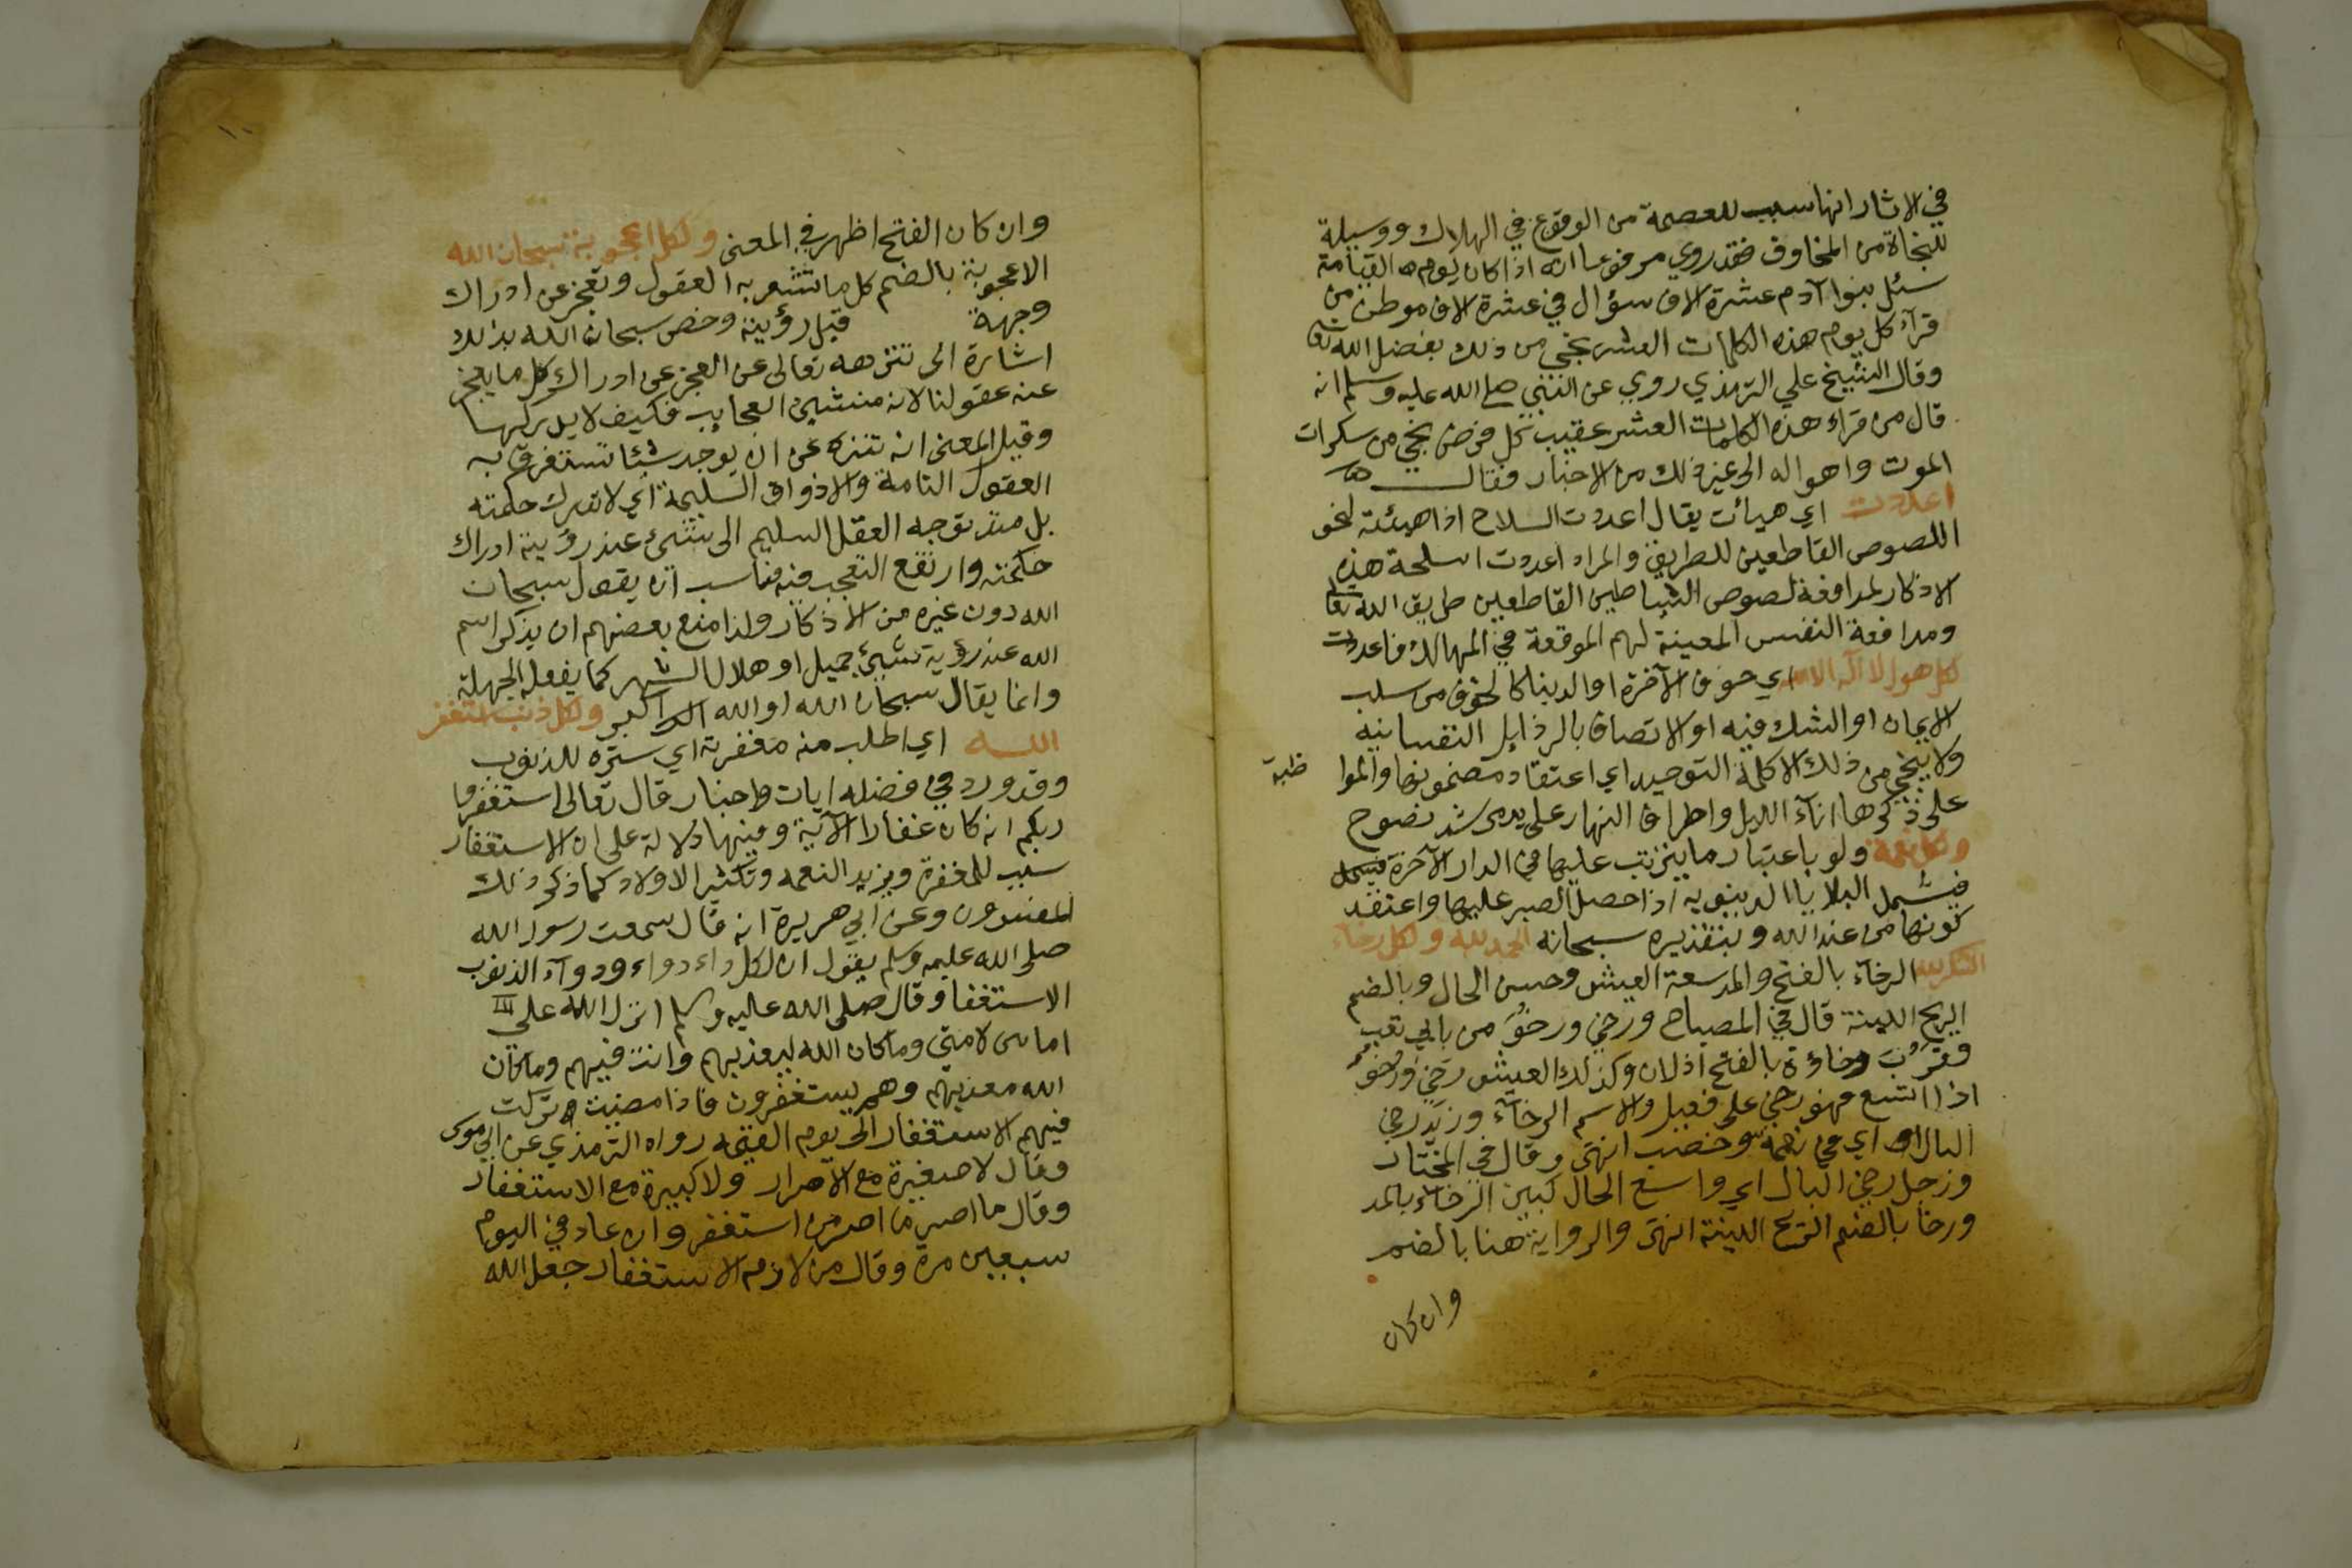 في الاثار انها سبب للعصمة من الوقوع في الهلاك ووسيلة
للنجاة من المخاوف فقد روي مرفوعا انه اذا كان يوم القيامة
سئل بنوا آدم عشرة الاف سؤال في عشرة الاف موطن من
قرآء كل يوم هذه الكلمات العشر نجي من ذلك بفضل الله تعا
وقال الشيخ علي الترمذي روي عن النبي صلى الله عليه وسلم انه
قال من قراء هذه الكلمات العشر عقيب كل فرض نجي من سكرات
الموت واهواله الى غير ذلك من الاخبار فقال
اعددت اي هيأت يقال اعددت السلاح اذا هيئته لنحو
اللصوص القاطعين للطريق والمراد اعددت اسلحة هذه
الاذكار لمدافعة لصوص الشياطين القاطعين طريق الله تعا
ومدافعة النفس المعينة لهم الموقعة في المهالك فاعددت
لكل هول لا اله الا الله اي خوف الآخرة او الدينا كالخوف من سلب
الايمان او الشك فيه او الاتصاف بالرذايل النفسانيه
ولا ينجي من ذلك الا كلمة التوحيد اي اعتقاد مضمونها والموا ظبة
على ذكرها اناء الليل واطراف النهار على يد مرشد نصوح
ولكل نعمة ولو باعتبار ما يترتب عليها في الدار الآخرة فيسمل
فيشمل البلايا الدينويه اذا حصل الصبر عليها واعتقد
كونها من عند الله وبتقديره سبحانه الحمد لله ولكل رخاء
الشكر لله الرخاء بالفتح والمد سعة العيش وحسن الحال وبالضم
الريح اللينة قال في المصباح ورخي ورخو من بابي تعب
وقرب رخاوة بالفتح اذ لان وكذلك العيش رخي ورخو
اذا اتسع فهو رخي على فعيل والاسم الرخاء وزيد رخي
البال اي في نعمة وخصب انتهى وقال في المختار
ورجل رخي البال اي واسع الحال كبين الرخاء بالمد
ورخا بالضم الريح اللينة انتهى والرواية هنا بالضم
وان كان
١٠
وان كان الفتح اظهر في المعنى ولكل اعجوبة سبحان الله
الاعجوبة بالضم كل ما تشعر به العقول وتعجز عن ادراك
وجهة قبل رؤيته وخص سبحان الله بذلك
اشارة الى تنزهه تعالى عن العجز عن ادراك كل ما يعجز
عنه عقولنا لانه منشئ العجايب فكيف لا يدركها
وقيل المعنى انه تنزه عن ان يوجد شيئا تستغرق به
العقول التامة والاذواق السليمة اي لا تدرك حكمته
بل متى توجه العقل السليم الى شئ عند رؤيته ادراك
حكمته وارتفع التعجب منه فناسب ان يقول سبحان
الله دون غيره من الاذكار ولذا منع بعضهم ان يذكر اسم
الله عند رؤية شيئ جميل او هلال الشهر كما يفعله الجهلة
وانما يقال سبحان الله او الله اكبر ولكل ذنب استغفر
الله اي اطلب منه مغفرته اي ستره للذنوب
وقد ورد في فضله ايات واخبار قال تعالى استغفروا
ربكم انه كان غفارا الآية وفيها دلالة على ان الاستغفار
سبب للمغفرة ويزيد النعمه وتكثير الاولاد كما ذكر ذلك
المفسرون وعن ابي هريرة انه قال سمعت رسول الله
صلى الله عليه وسلم يقول ان لكل داء دواء ودوآء الذنوب
الاستغفا وقال صلى الله عليه وسلم انزل الله علي
امانين لامتي وما كان الله ليعذبهم وانت فيهم وما كان
الله معذبهم وهم يستغفرون فاذا مضيت تركت
فيهم الاستغفار الى يوم القيمه رواه الترمذي عن ابي موسى
وقال لا صغيرة مع الاصرار ولا كبيرة مع الاستغفار
وقال ما اصر من استغفر وان عاد في اليوم
سبعين مرة وقال من لازم الاستغفار جعل الله